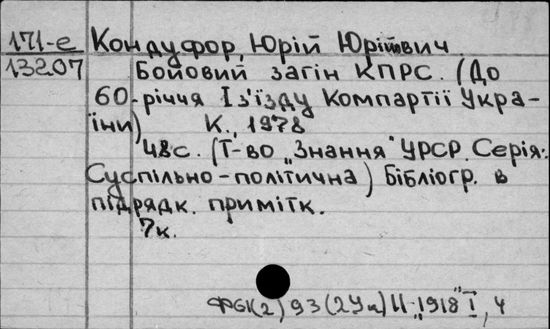 171-е Кондуфор, Юрій Юрійович.
13207 Бойовий загін КПРС. (До
60-річчя I з'їзду Компартії Укра-
їни) К., 1978
48с. (Т-во „Знання" УРСР. Серія:
Суспільно-політична) Бібліогр. в
підрядк. примітк.
7к.
ФБК(2), 93(2Ук)Н„1918" I, 4